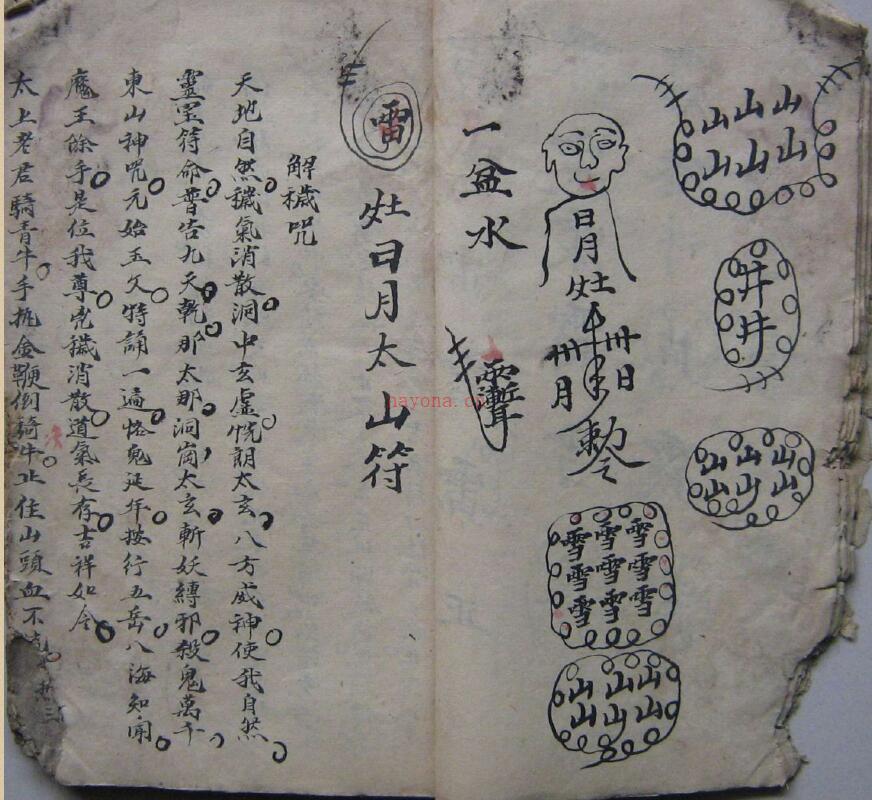 山山山
山山山
井
井
山山山
山山山
日月灶
卅日
卅月
敕令
雪雪雪
雪雪雪
雪雪雪
山山山
山山山
一盆水
雷
灶日月太山符
解穢咒
天地自然穢氣消散洞中玄虛恍朗太玄八方威神使我自然
靈宝符命普告九天乾那太那洞崗太玄斬妖縛邪殺鬼萬千
東山神咒元始玉文特誦一遍鬼延年按行五岳八海知闻
魔王餘手是位我尊兇穢消散道氣長存吉祥如令
太上老君騎青牛手金鞭倒騎牛止住山頭血不